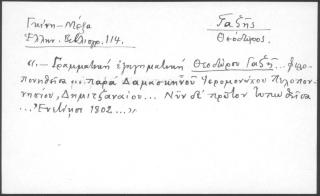 Γκίνη - Μέξα
Ἑλλην. Βιβλιογρ. 114.
Γαζῆς
Θεόδωρος.
«.— Γραμματικὴ ἐξηγηματικὴ Θεοδώρου Γαζῆ... φιλο-
πονηθεῖσα μὲν παρὰ Δαμασκηνοῦ Ἱερομονάχου Πελοπον-
νησίου, Δημιτζαναίου... Νῦν δὲ πρῶτον τυπωθεῖσα
... Ἐνετίησι 1802...»